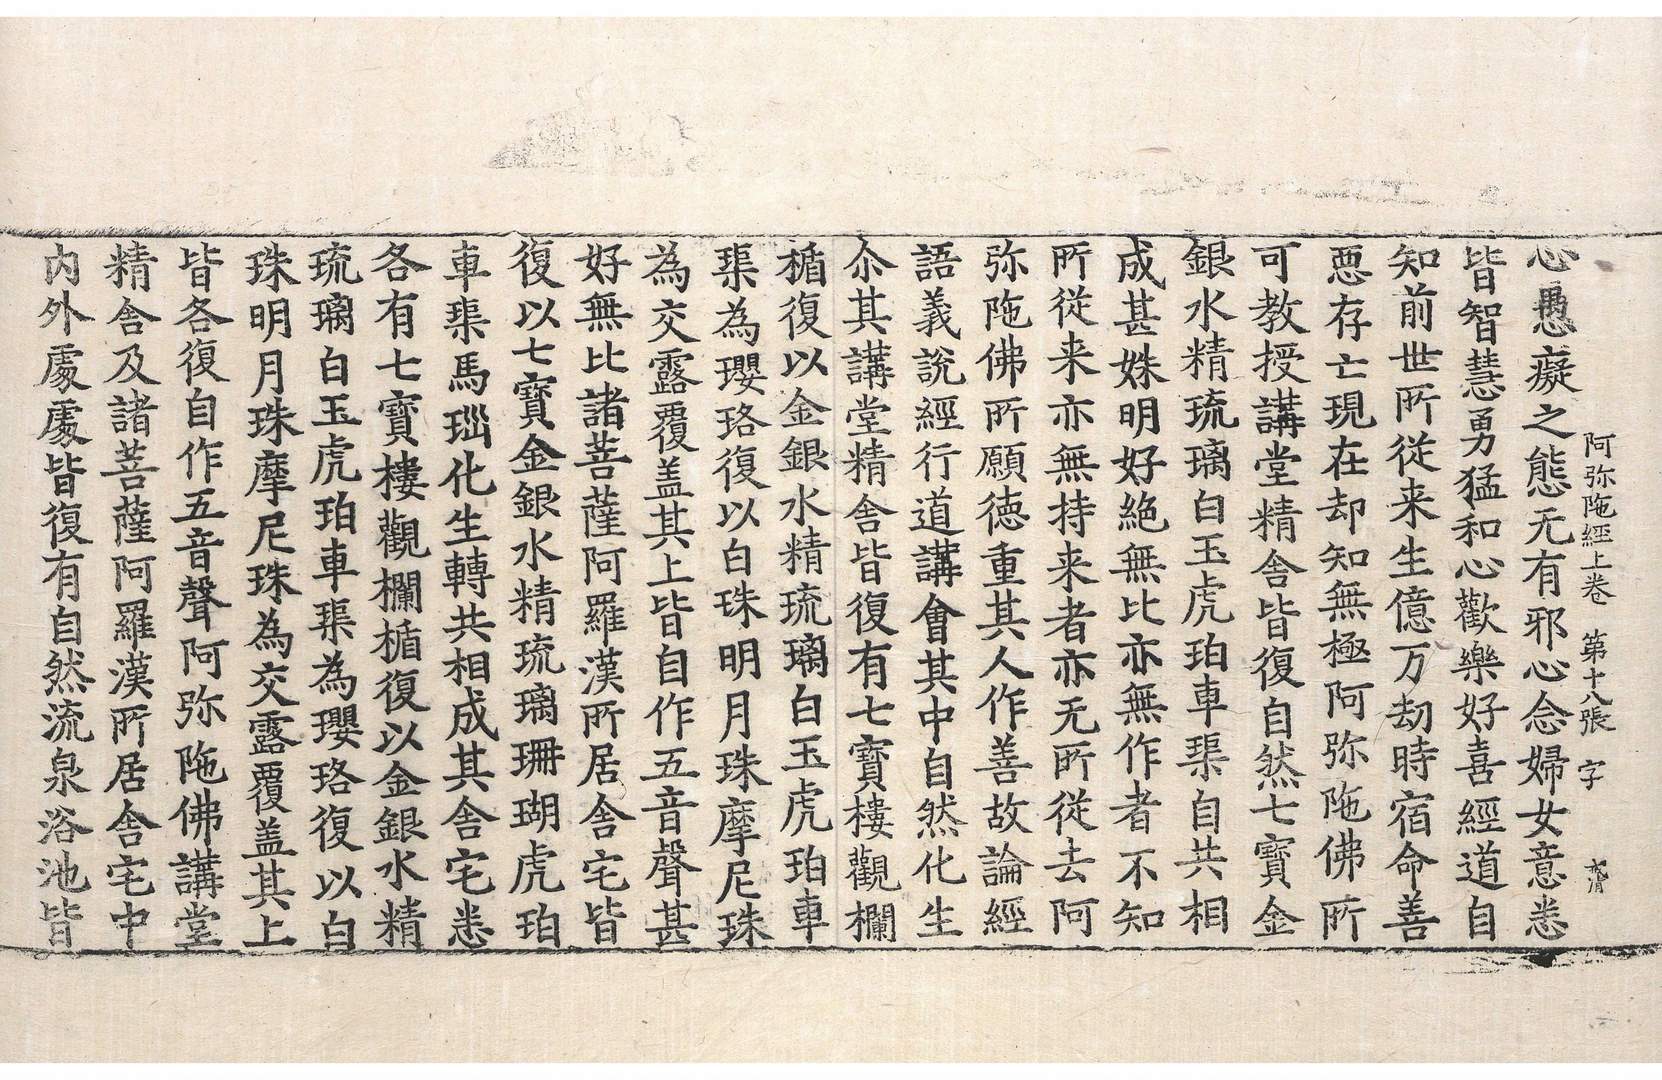 阿弥陁經上卷 第十八張 字
心愚癡之態无有邪心念婦女意悉
皆智慧勇猛和心歡樂好喜經道自
知前世所従来生億万劫時宿命善
惡存亡現在却知無極阿弥陁佛所
可教授講堂精舎皆復自然七寶金
銀水精琉璃白玉虎珀車璖自共相
成甚姝明好絶無比亦無作者不知
所従来亦無持来者亦无所従去阿
弥陁佛所願徳重其人作善故論經
語義說經行道講會其中自然化生
尒其講堂精舎皆復有七寶樓觀欄
楯復以金銀水精琉璃白玉虎珀車
璖為瓔珞復以白珠明月珠摩尼珠
為交露覆盖其上皆自作五音聲甚
好無比諸菩薩阿羅漢所居舎宅皆
復以七寶金銀水精琉璃珊瑚虎珀
車璖馬瑙化生轉共相成其舎宅悉
各有七寶樓觀欄楯復以金銀水精
琉璃白玉虎珀車璖為瓔珞復以白
珠明月珠摩尼珠為交露覆盖其上
皆各復自作五音聲阿弥陁佛講堂
精舎及諸菩薩阿羅漢所居舎宅中
内外處處皆復有自然流泉浴池皆